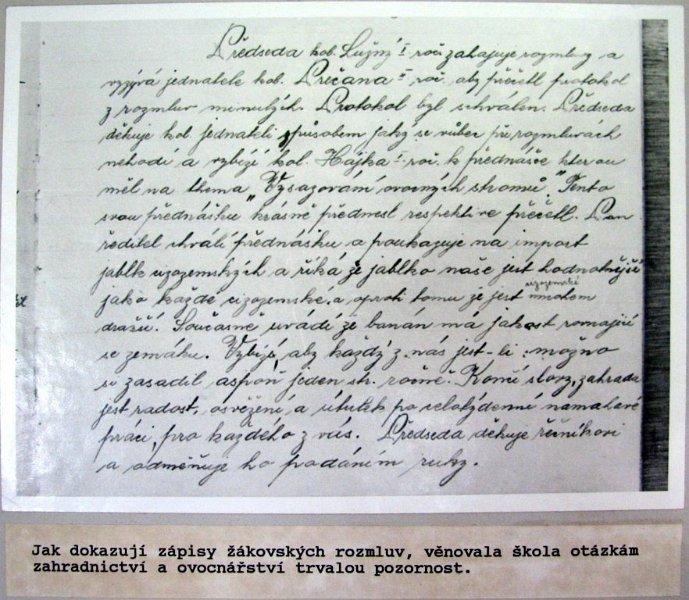 Předseda kol. Lužný I roč. zahajuje rozmluvy a
vyzývá jednatele kol. Prečana II roč. aby přečetl protokol
z rozmluv minulých. Protokol byl schválen. Předseda
děkuje kol. jednateli způsobem jaký se vůbec při rozmluvách
nehodí a vybízí kol. Hájka I roč. k přednášce kterou
měl na thema „Vysazování ovocných stromů". Tento
svou přednášku krásně přednesl respektive přečetl. Pan
ředitel chválí přednášku a poukazuje na import
jablk cizozemských a říká že jablko naše jest hodnotnější
jako každé cizozemské, a oproti tomu že jest cizozemské mnohem
dražší. Současně uvádí že banán má jakost rovnající
se zemáku. Vybízí, aby každý z nás jest-li možno
si zasadil aspoň jeden str. ročně. Končí slovy, zahrada
jest radost, osvěžení a útulek po celotýdenní namahavé
práci, pro každého z vás. Předseda děkuje řečníkovi
a odměňuje ho podáním ruky.
Jak dokazují zápisy žákovských rozmluv, věnovala škola otázkám
zahradnictví a ovocnářství trvalou pozornost.